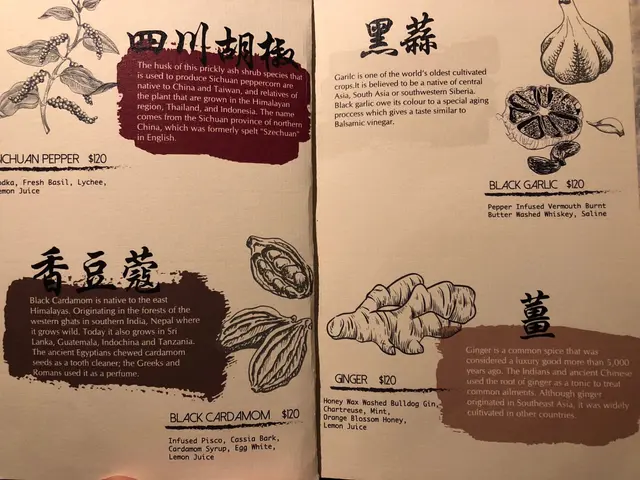 四川胡椒
The husk of this prickly ash shrub species that
is used to produce Sichuan peppercorn are
native to China and Taiwan, and relatives of
the plant that are grown in the Himalayan
region, Thailand, and Indonesia. The name
comes from the Sichuan province of northern
China, which was formerly spelt "Szechuan"
in English.
ICHUAN PEPPER $120
odka, Fresh Basil, Lychee,
emon Juice
香豆蔻
Black Cardamom is native to the east
Himalayas. Originating in the forests of the
western ghats in southern India, Nepal where
it grows wild. Today it also grows in Sri
Lanka, Guatemala, Indochina and Tanzania.
The ancient Egyptians chewed cardamom
seeds as a tooth cleaner; the Greeks and
Romans used it as a perfume.
BLACK CARDAMOM $120
Infused Pisco, Cassia Bark,
Cardamom Syrup, Egg White,
Lemon Juice
黑蒜
Garilc is one of the world's oldest cultivated
crops.It is believed to be a native of central
Asia, South Asia or southwestern Siberia.
Black garlic owe its colour to a special aging
proccess which gives a taste similar to
Balsamic vinegar.
BLACK GARLIC $120
Pepper Infused Vermouth Burnt
Butter Washed Whiskey, Saline
薑
Ginger is a common spice that was
considered a luxury good more than 5,000
years ago. The Indians and ancient Chinese
used the root of ginger as a tonic to treat
common ailments. Although ginger
originated in Southeast Asia, it was widely
cultivated in other countries.
GINGER $120
Honey Wax Washed Bulldog Gin,
Chartreuse, Mint,
Orange Blossom Honey,
Lemon Juice